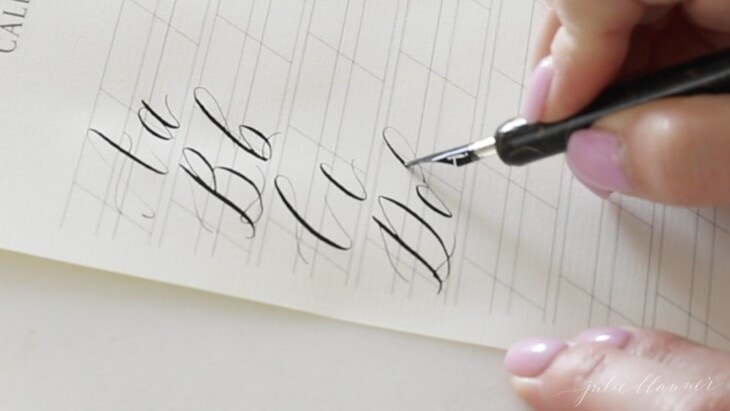 CALL
Aa
Bb
Cc
Dd
julie blanner